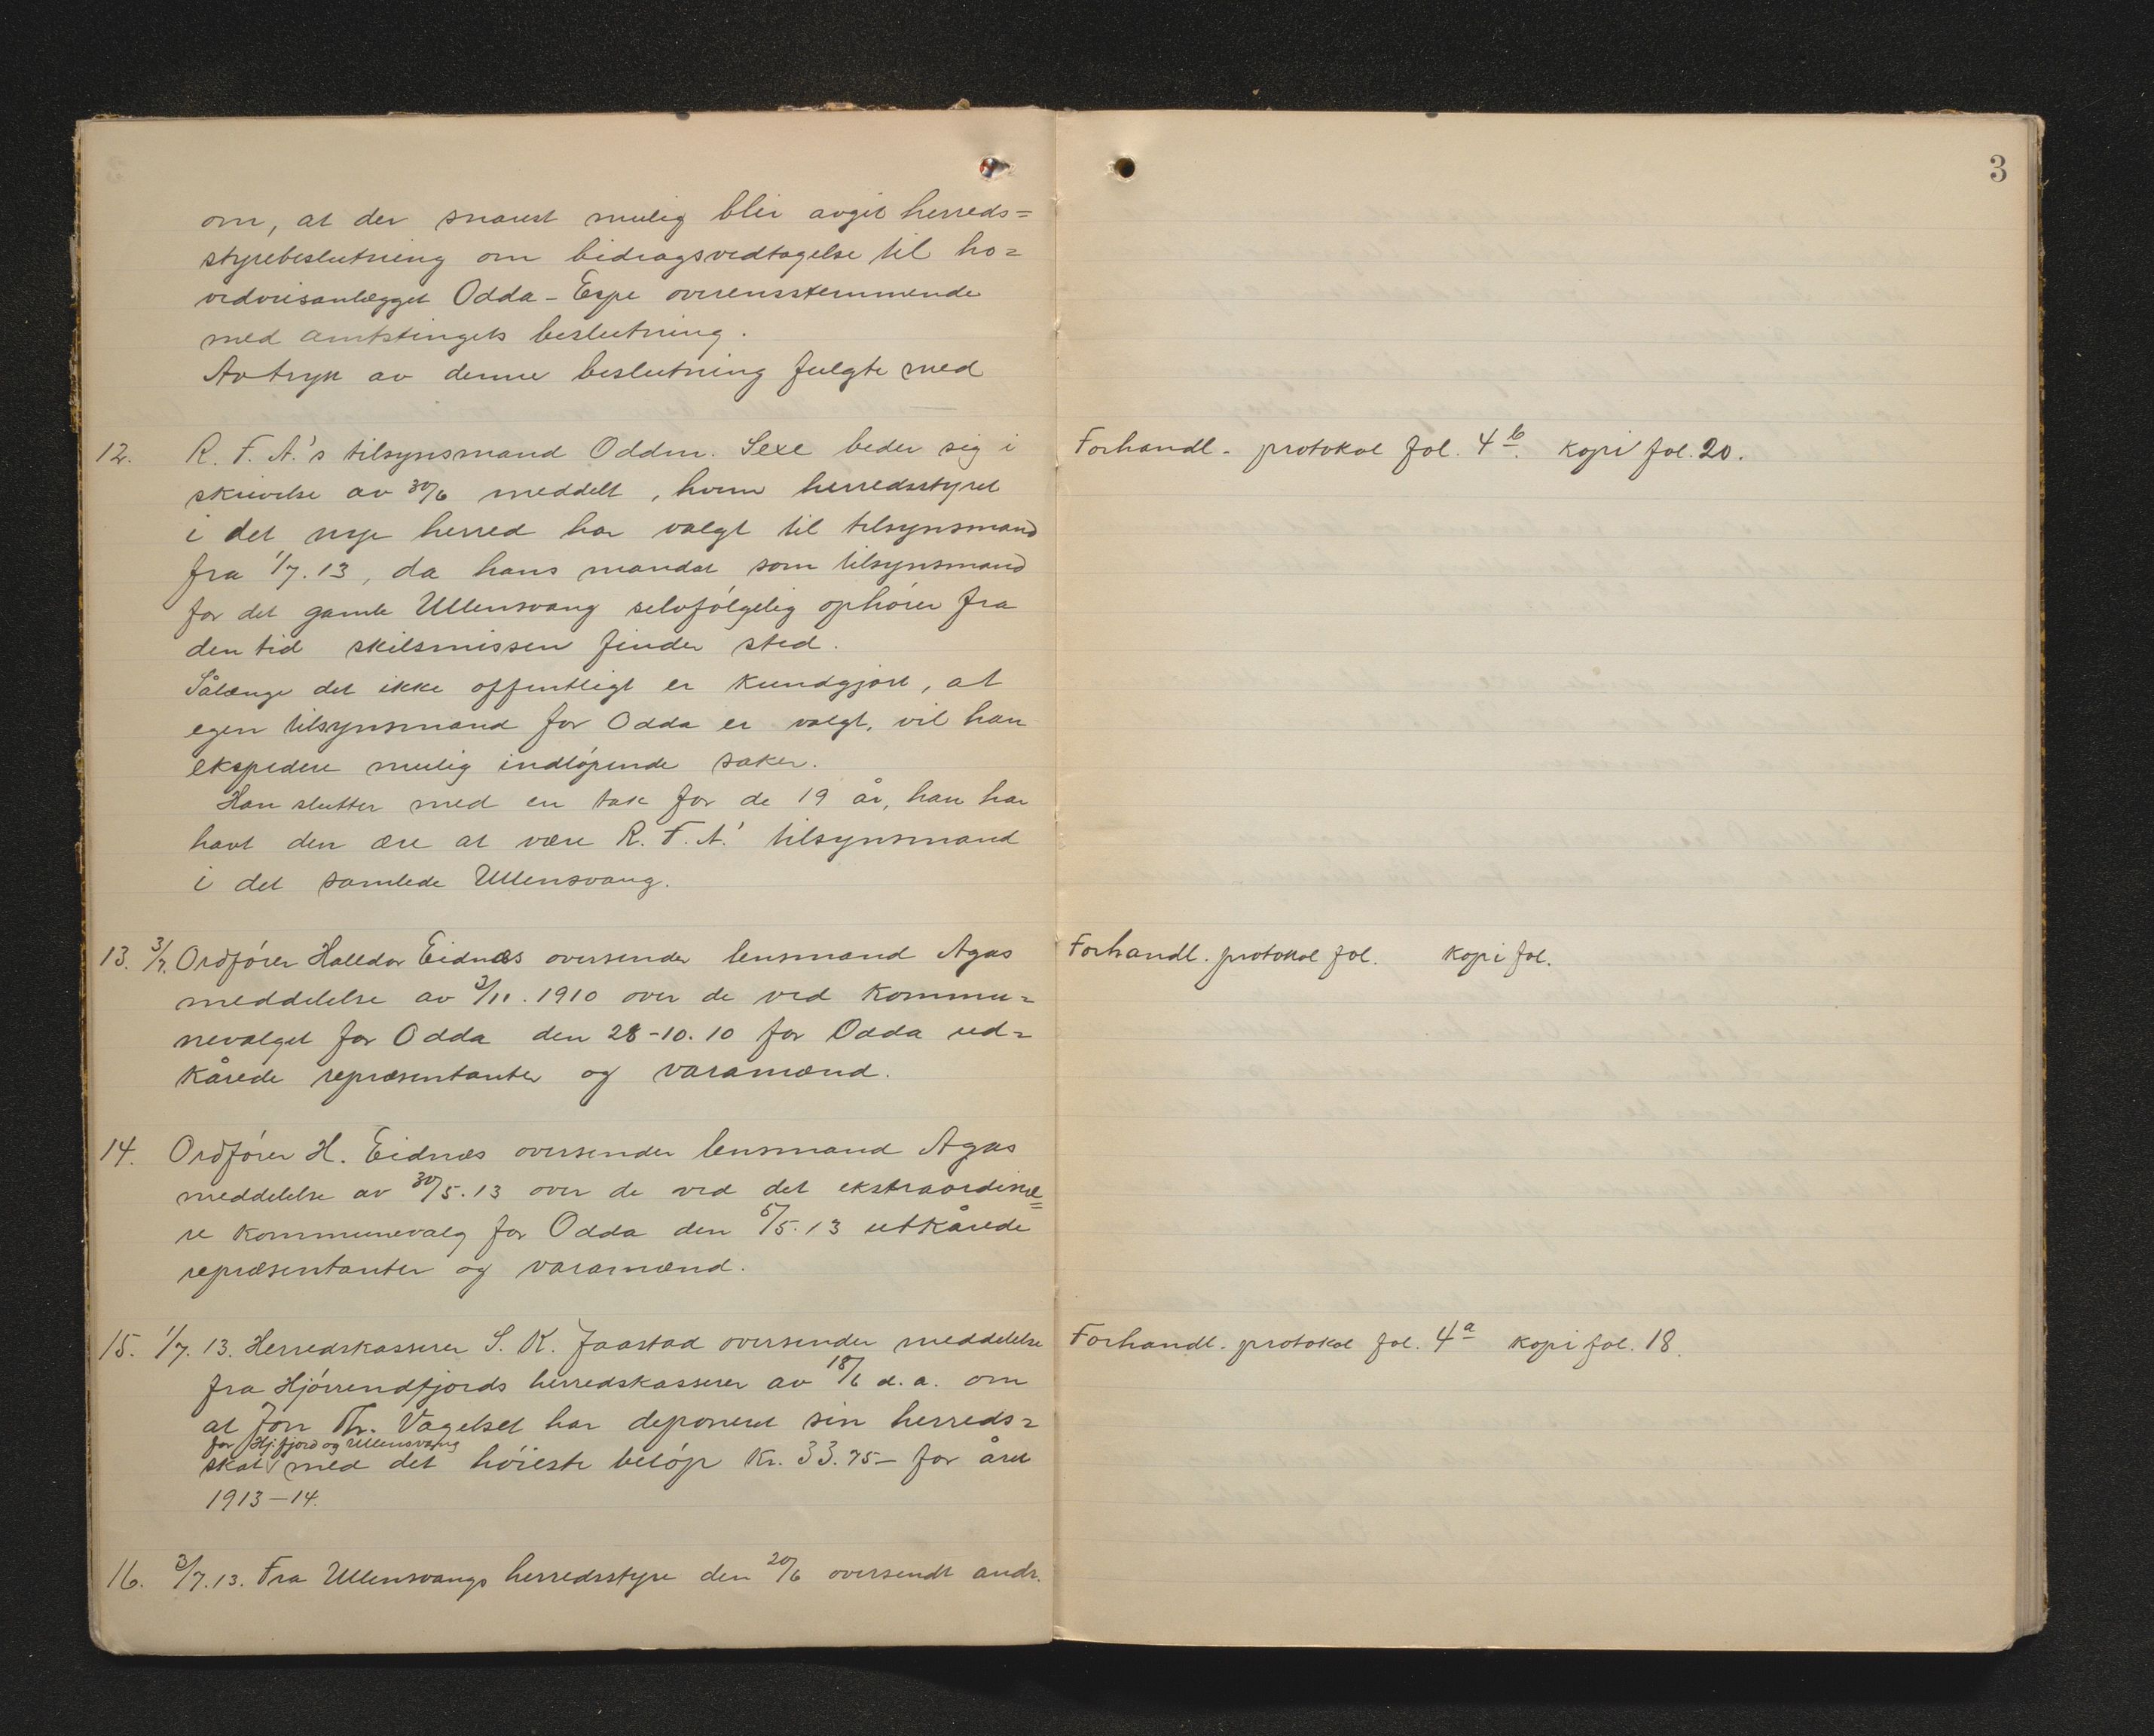 3
om, at der snarest mulig blir avgit herreds=
styrebeslutning om bidragsvedtagelse til ho=
vedveisanlægget Odda - Espe overensstemmende
med amtstingets beslutning.
Avtryk av denne beslutning fulgte med
12. R. F. A.'s tilsynsmand Oddm. Sexe beder sig i
skrivelse av 30/6 meddelt, hvem herredsstyret
i det nye herred har valgt til tilsynsmand
fra 1/7.13, da hans mandat som tilsynsmand
for det gamle Ullensvang selvfølgelig ophører fra
den tid skilsmissen finder sted.
Sålænge det ikke offentligt er kundgjort, at
egen tilsynsmand for Odda er valgt, vil han
ekspedere mulig indløpende saker.
Han slutter med en tak for de 19 år, han har
havt den ære at være R. F. A.' tilsynsmand
i det samlede Ullensvang.
Forhandl. protokol fol. 4b. kopi fol. 20.
13. 3/7. Ordfører Halldor Eidnæs oversender lensmand Agas
meddelelse av 3/11. 1910 over de ved kommu=
nevalget for Odda den 28-10.10 for Odda ud=
kårede repræsentanter og varamænd.
Forhandl. protokol fol. kopi fol.
14. Ordfører H. Eidnæs oversender lensmand Agas
meddelelse av 30/5.13 over de ved det ekstraordinæ=
re kommunevalg for Odda den 5/5.13 utkårede
repræsentanter og varamænd.
15. 1/7. 13. Herredskasserer S. K. Jaastad oversender meddelelse
fra Hjørrendfjords herredskasserer av 18/6 d.a. om
at Jon Th. Vagelset har deponeret sin herreds=
for Hj.fjord og Ullensvang
skat med det høieste beløp kr. 33.75 - for året
1913-14.
Forhandl. protokol fol. 4a kopi fol. 18.
16. 3/7.13. Fra Ullensvangs herredsstyre den 20/6 oversendt andr.